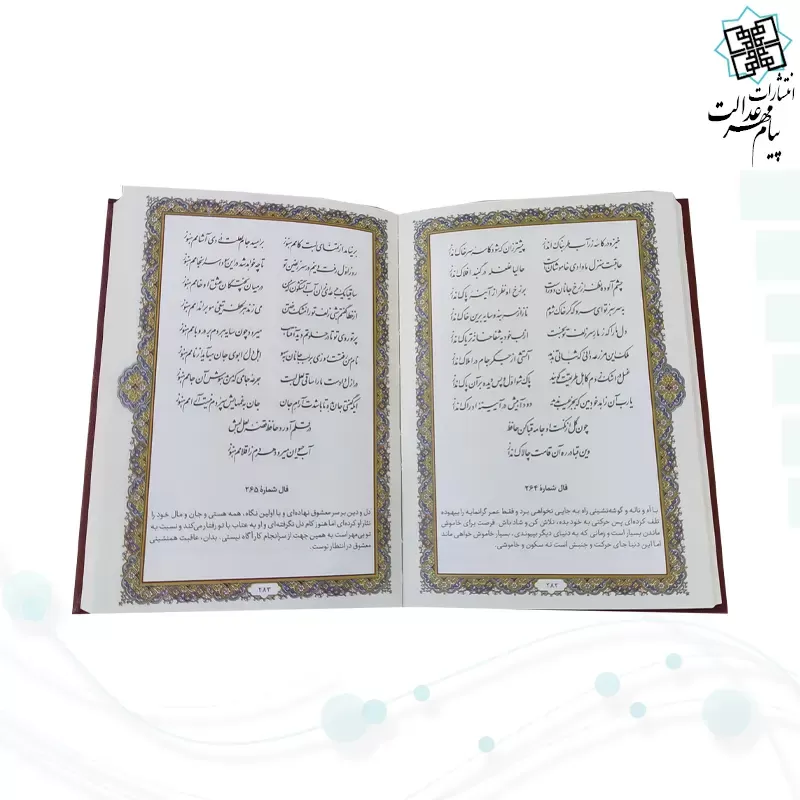 انتشارات
پیام مهر عدالت
خیز و در کاسه زر آب طربناک انداز پیشتر زان که شود کاسه سر خاک انداز
عاقبت منزل ما وادی خاموشان است حالیا غلغله در گنبد افلاک انداز
چشم آلوده نظر از رخ جانان دور است بر رخ او نظر از آینه پاک انداز
به سر سبز تو ای سرو که گر خاک شوم ناز از سر بنه و سایه بر این خاک انداز
دل ما را که ز مار سر زلف تو بخست از لب خود به شفاخانه تریاک انداز
ملک این مزرعه دانی که ثباتی ندهد آتشی از جگر جام در املاک انداز
غسل در اشک زدم کاهل طریقت گویند پاک شو اول و پس دیده بر آن پاک انداز
یارب آن زاهد خودبین که بجز عیب ندید دود آهیش در آیینه ادراک انداز
چون گل از نکهت او جامه قبا کن حافظ
وین قبا در ره آن قامت چالاک انداز
فال شمارهٔ ۲۶۴
با آه و ناله و گوشه‌نشینی راه به جایی نخواهی برد و فقط عمر گرانمایه را بیهوده
تلف کرده‌ای پس حرکتی به خود بده، تلاش کن و شاد باش. فرصت برای خاموش
ماندن بسیار است و زمانی که به دنیای دیگر بپیوندی، بسیار خاموش خواهی ماند
اما این دنیا جای حرکت و جنبش است نه سکون و خاموشی.
۲۸۲
برنیامد از تمنای لبت کامم هنوز بر امید جام لعلت دردی آشامم هنوز
روز اول رفت دینم در سر زلفین تو تا چه خواهد شد در این سودا سرانجامم هنوز
ساقیا یک جرعه‌ای زان آب آتشگون که من در میان پختگان عشق او خامم هنوز
از خطا گفتم شبی زلف تو را مشک ختن می‌زند هر لحظه تیغی مو بر اندامم هنوز
پرتو روی تو تا در خلوتم دید آفتاب می‌رود چون سایه هر دم بر در و بامم هنوز
نام من رفتست روزی بر لب جانان به سهو اهل دل را بوی جان می‌آید از نامم هنوز
در ازل دادست ما را ساقی لعل لبت جرعه جامی که من مدهوش آن جامم هنوز
ای که گفتی جان بده تا باشدت آرام جان جان به غمهایش سپردم نیست آرامم هنوز
در قلم آورد حافظ قصه لعل لبش
آب حیوان می‌رود هر دم ز اقلامم هنوز
فال شمارهٔ ۲۶۵
دل و دین بر سر معشوق نهاده‌ای و با اولین نگاه، همه هستی و جان و مال خود را
نثار او کرده‌ای اما هنوز کام دل نگرفته‌ای و او به عتاب با تو رفتار می‌کند و نسبت به
تو بی‌مهر است به همین جهت از سرانجام کار آگاه نیستی. بدان، عاقبت همنشینی
معشوق در انتظار توست.
۲۸۳